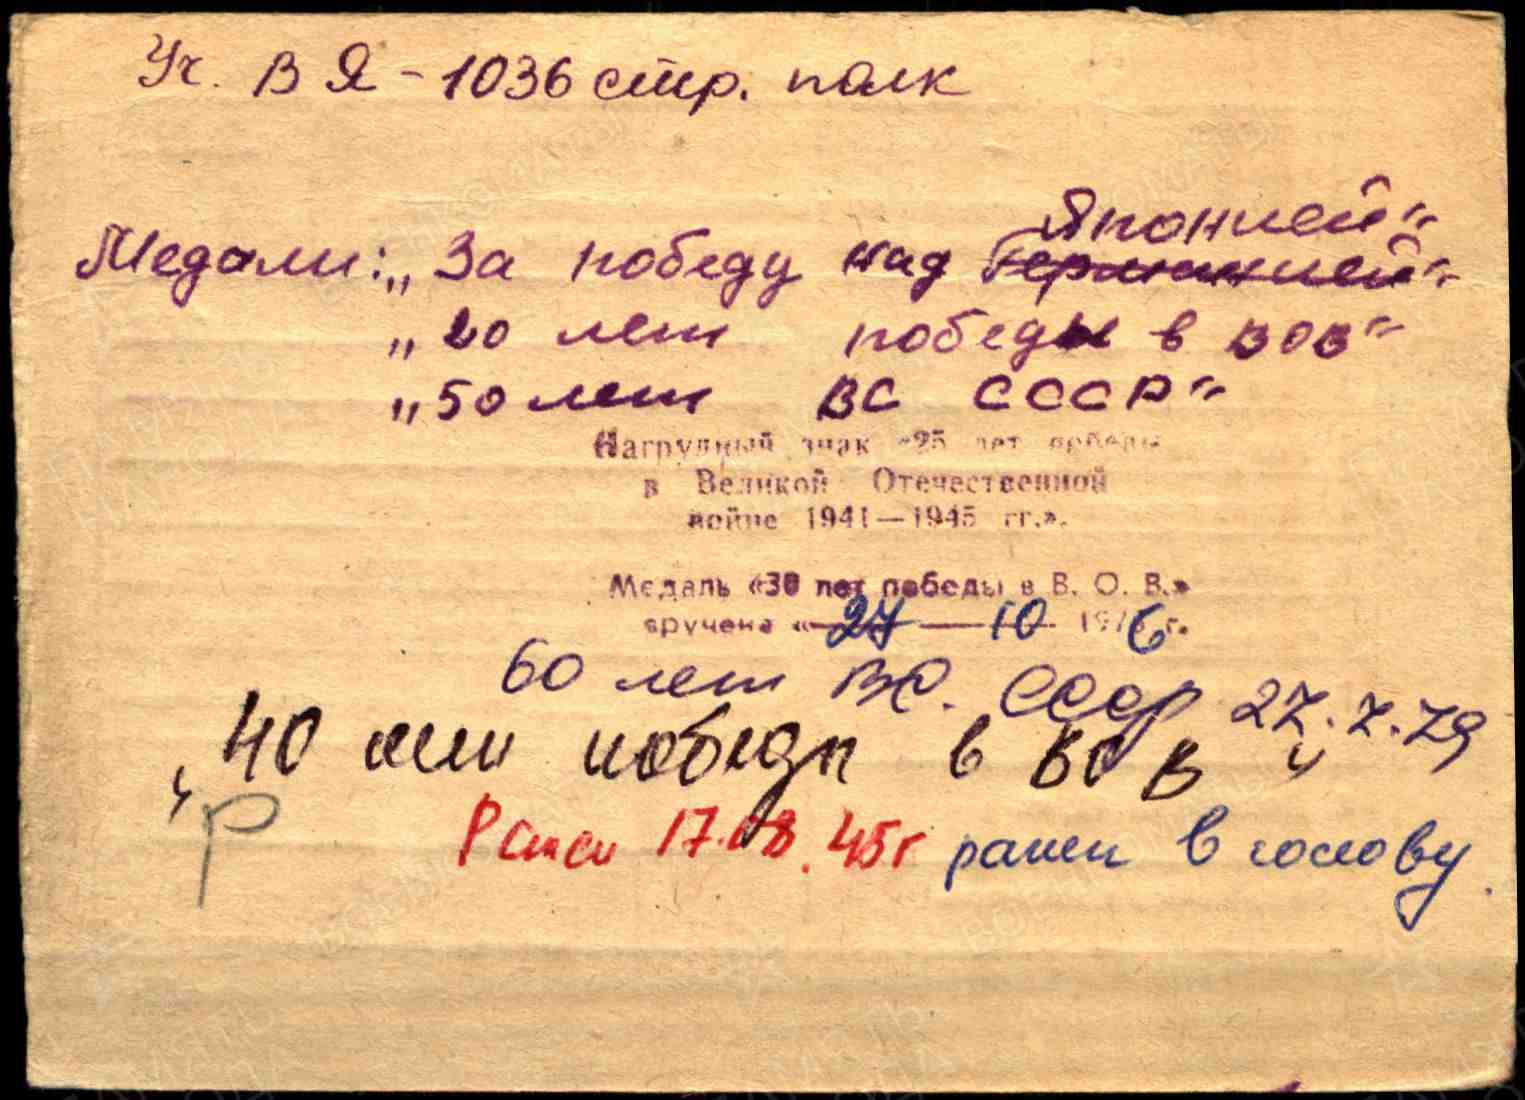 Уч. В Я - 1036 стр. полк
Японией"
Медали: „За победу над Германией"
„20 лет победы в ВОВ"
„50 лет ВС СССР"
Нагрудный знак «25 лет победы
в Великой Отечественной
войне 1941—1945 гг.».
Медаль «30 лет победы в В. О. В.»
вручена «27 — 10 1976 г.
60 лет ВС. СССР 27.7.79
„40 лет победы в ВОВ"
Р
Ранен 17.08.45г ранен в голову.